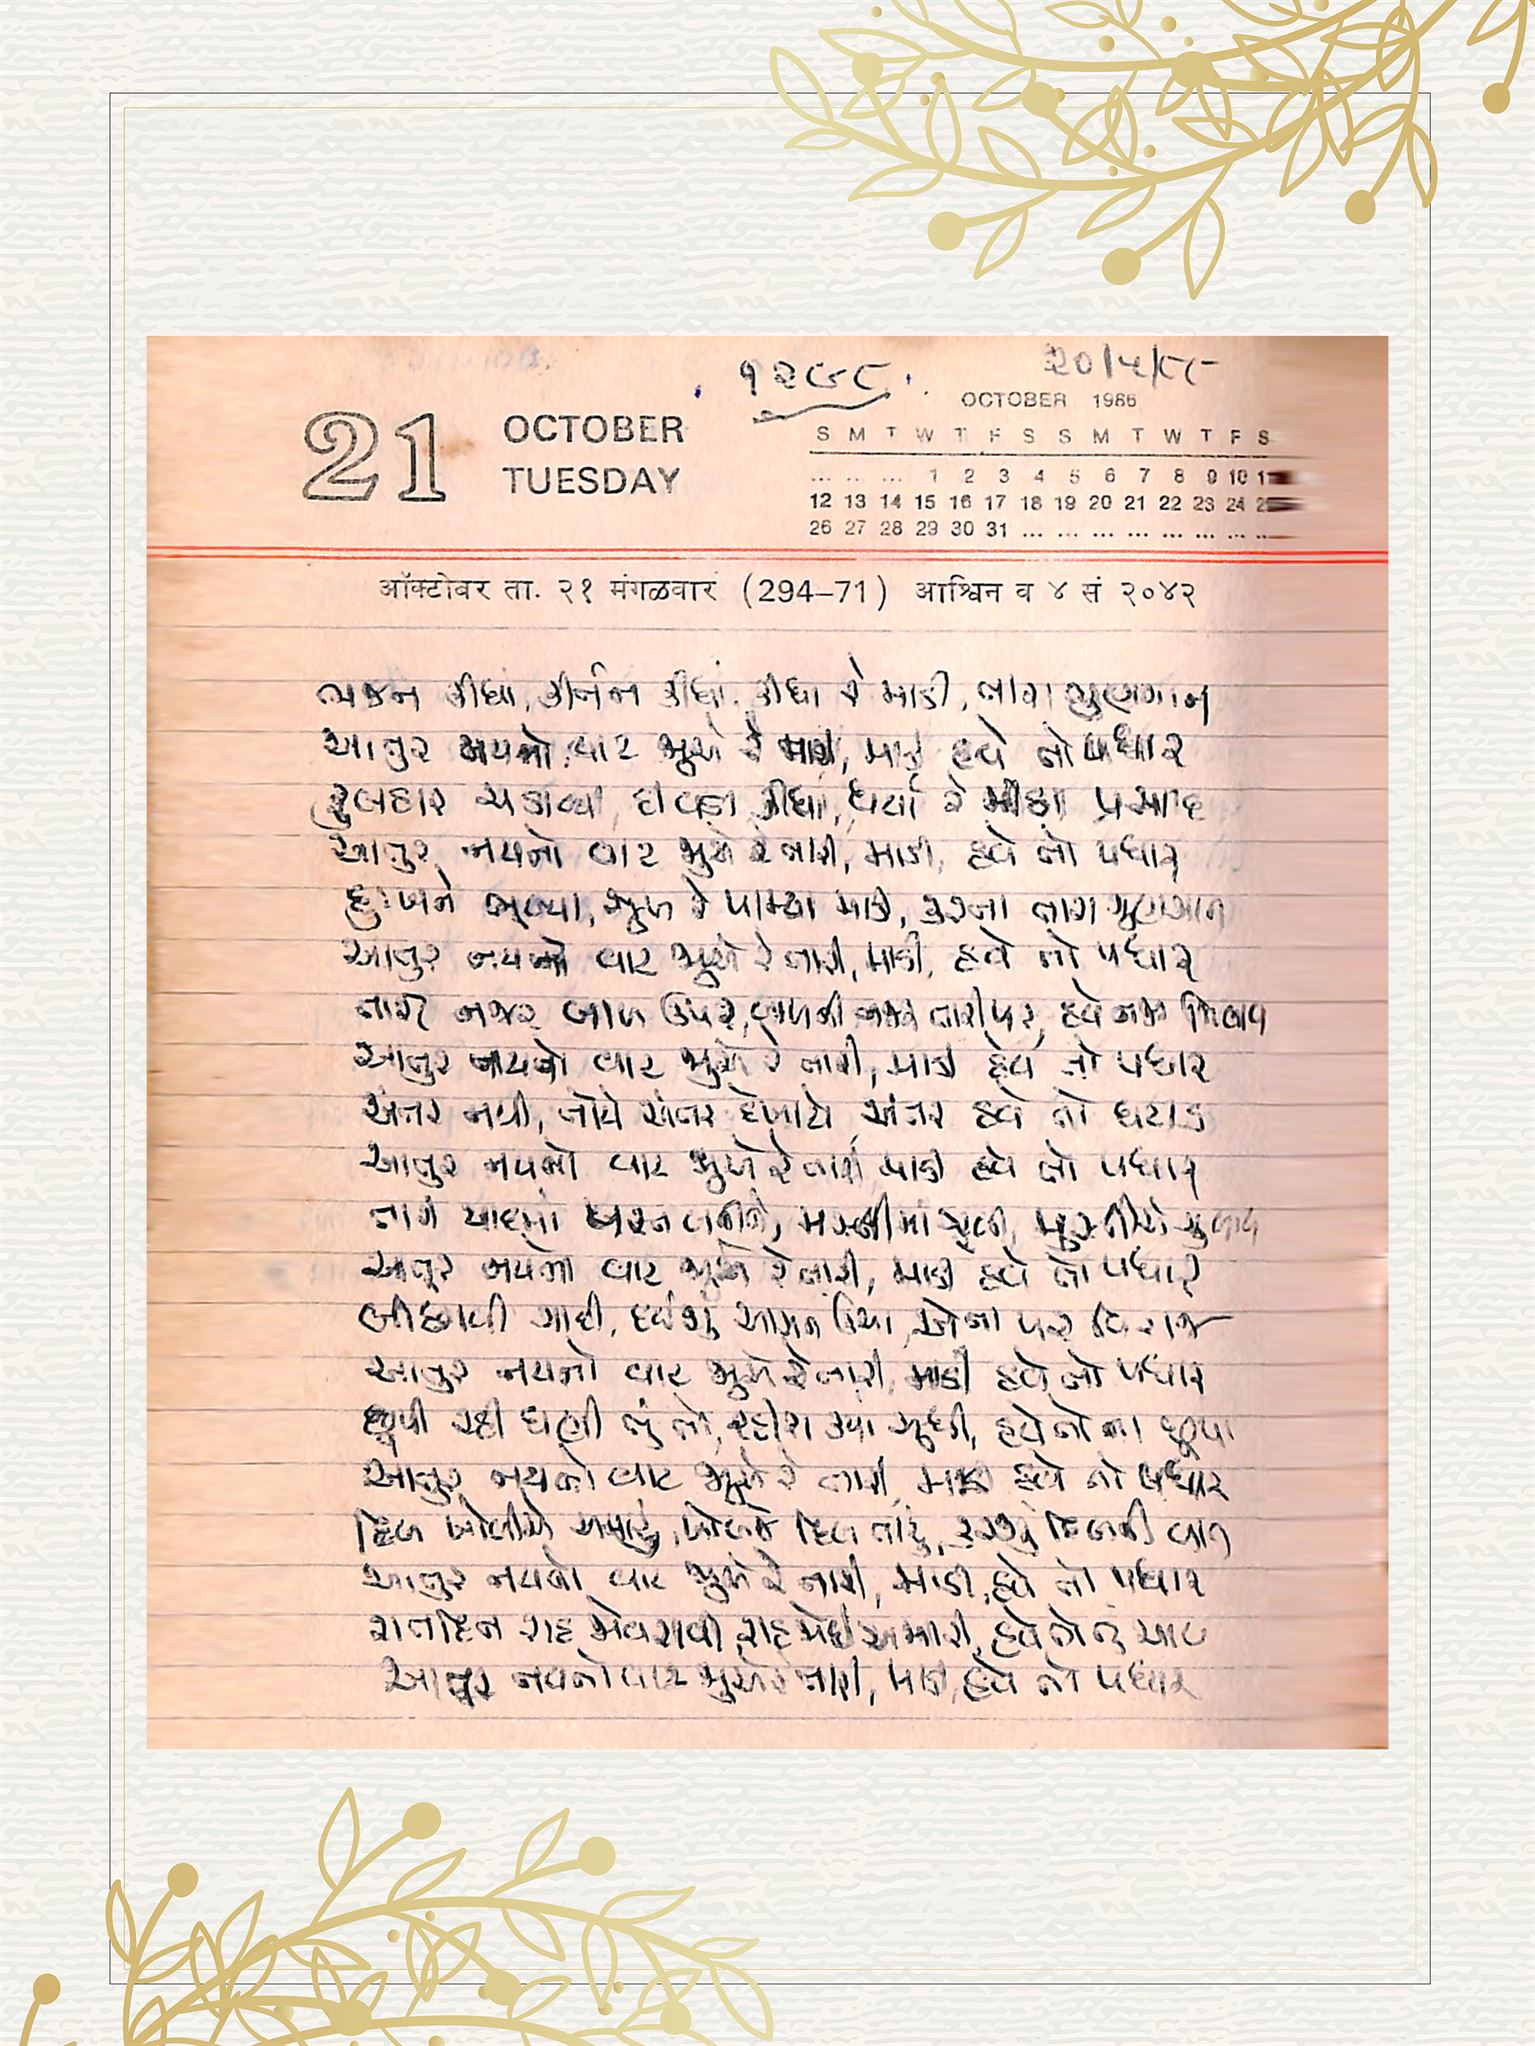 ૧૨૯૮
૨૦/૫/૮૮
21 OCTOBER
TUESDAY
OCTOBER 1986
S M T W T F S S M T W T F S
... ... ... 1 2 3 4 5 6 7 8 9 10 11
12 13 14 15 16 17 18 19 20 21 22 23 24 25
26 27 28 29 30 31 ... ... ... ... ... ... ... ...
ऑक्टोबर ता. २१ मंगळवार (294–71) आश्विन व ४ सं २०४२
ભજન કીધાં, કીર્તન કીધાં, કીધા રે માડી, તારા ગુણગાન
આતુર નયનો વાટ જુએ રે તારી, માડી હવે તો પધાર
ફુલહાર ચડાવ્યા, દીવડા કીધા, ધર્યા રે મીઠા પ્રસાદ
આતુર નયનો વાટ જુએ રે તારી, માડી, હવે તો પધાર
દુઃખને ભૂલ્યા, સુખ રે પામ્યા માડી, કરતા તારા ગુણગાન
આતુર નયનો વાટ જુએ રે તારી, માડી, હવે તો પધાર
તારી નજર બાળ ઉપર, બાળની નજર તારી પર, હવે નજર મિલાવ
આતુર નયનો વાટ જુએ રે તારી, માડી હવે તો પધાર
અંતર નથી, તોયે અંતર દેખાયે, અંતર હવે તો ઘટાડ
આતુર નયનો વાટ જુએ રે તારી માડી હવે તો પધાર
તારી યાદમાં મસ્ત બનીને, મસ્તીમાં ઝૂલી,
આતુર નયનો વાટ જુએ રે તારી, માડી હવે તો પધાર
બીછાવી ગાદી, દઈશું આસન ઊંચા, એના પર બિરાજ
આતુર નયનો વાટ જુએ રે તારી, માડી હવે તો પધાર
છૂપી રહી ઘણી તું તો, રહીશ ક્યાં સુધી, હવે તો ના છૂપા
આતુર નયનો વાટ જુએ રે તારી માડી હવે તો પધાર
દિલ ખોલીએ અમારું, ખોલજે દિલ તારું, કરશું દિલની વાત
આતુર નયનો વાટ જુએ રે તારી, માડી, હવે તો પધાર
રાતદિન રાહ જોવરાવી, રાહ જોઈ અમારી, હવે તો તું આવ
આતુર નયનો વાટ જુએ રે તારી, માડી, હવે તો પધાર